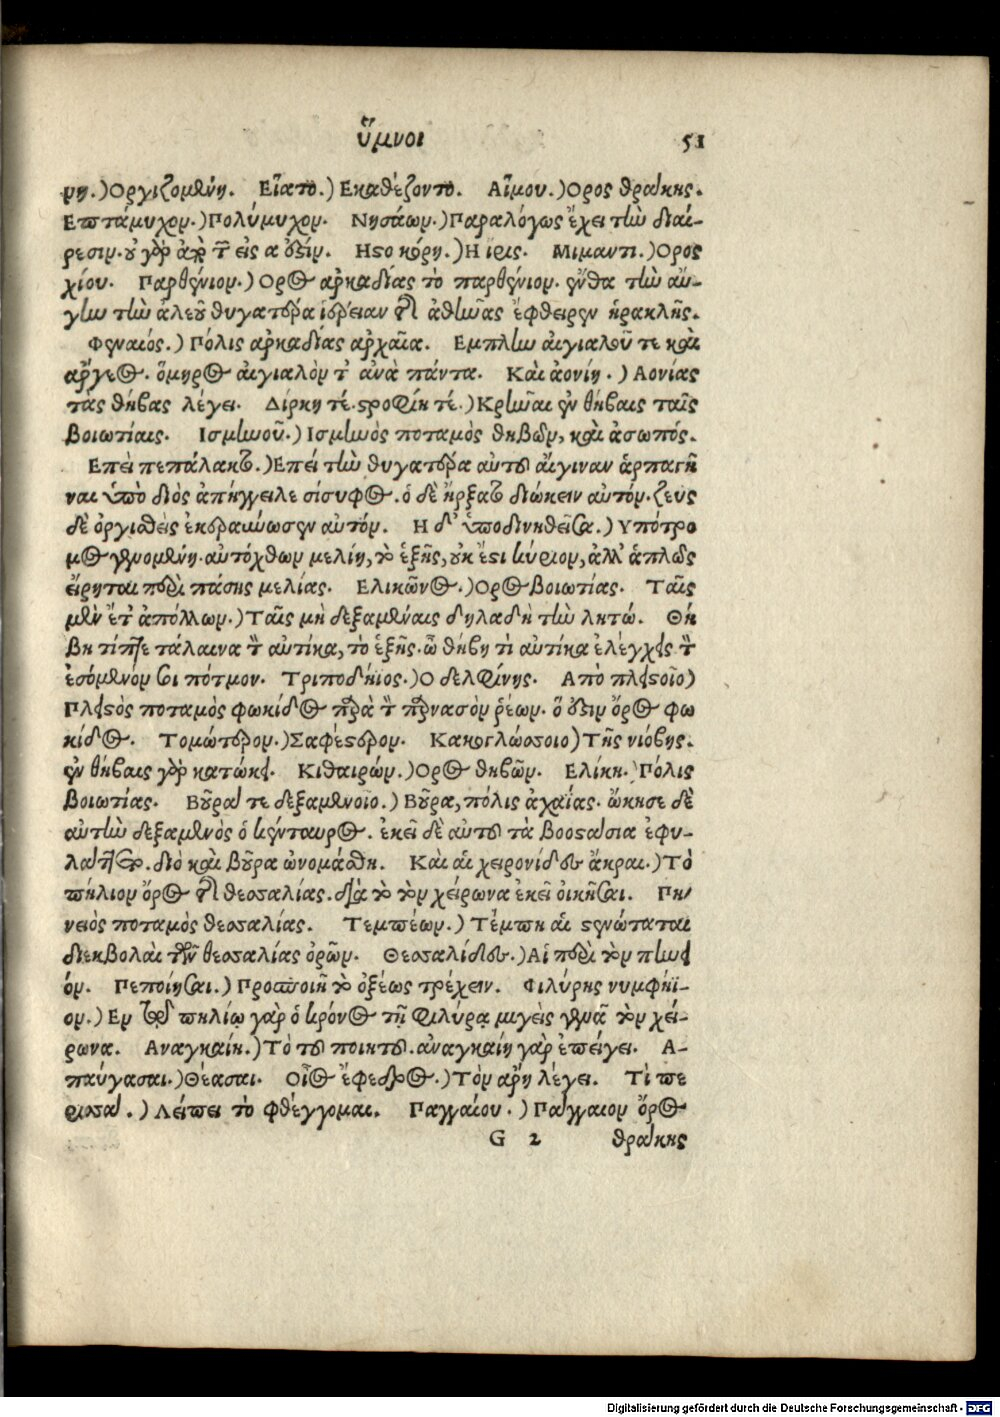 ὕμνοι 51
νη.) Οργιζομένη. Είατο.) Εκαθέζοντο. Αἵμου.) Ορος θράκης.
Επτάμυχον.) Πολύμυχον. Νησάων.) Παραλόγως ἔχει τὴν διαί-
ρεσιν. οὐ γὰρ ἀπὸ τῆς εἰς α ὀξεῖν. Ηδο κόρη.) Η ἶρις. Μίμαντι.) Ορος
χίου. Παρθένιον.) Ορος αρκαδίας τὸ παρθένιον. ἔνθα τὴν αὔ-
γην τὴν ἀλεοῦ θυγατέρα ἱέρειαν τῆς ἀθηνᾶς ἔφθειρεν ἡρακλῆς.
Φεναιός.) Πόλις αρκαδίας αρχαῖα. Εμπλην αἰγιαλοῦ τε καὶ
ἄργεος. ὅμηρος αἰγιαλὸν τ' ἀνὰ πάντα. Καὶ ἀονίη.) Αονίας
τὰς θήβας λέγει. Δίρκη τέ. στροφίη τέ.) Κρῆναι ἐν θήβαις ταῖς
βοιωτίαις. Ισμηνοῦ.) Ισμηνὸς ποταμὸς θηβῶν, καὶ ἀσωπός.
Επεὶ πεπάλακτο.) Επεὶ τὴν θυγατέρα αὐτοῦ αἴγιναν ἁρπαγῆ
ναι ὑπὸ διὸς ἀπήγγειλε σίσυφος. ὁ δὲ ἤρξατο διώκειν αὐτόν. ζευς
δὲ ὀργισθεὶς ἐκεραύνωσεν αὐτόν. Η δ' ὑποδινηθεῖσα.) Υπότρο
μος γενομένη. αυτόχθων μελίη, τὸ ἑξῆς, οὐκ ἔστι κύριον, ἀλλ' ἁπλῶς
εἴρηται περὶ πάσης μελίας. Ελικῶνος.) Ορος βοιωτίας. Ταῖς
μὲν ἔτ' ἀπόλλων.) Ταῖς μὴ δεξαμέναις δηλαδὴ τὴν λητώ. Θή
βη τίπτε τάλαινα τὸν αὐτίκα, τὸ ἑξῆς. ὦ θήβη τὶ αὐτίκα ἐλέγχεις τὸν
ἐσόμενόν σοι πότμον. Τριποδήϊος.) Ο δελφίνης. Απὸ πλειστοῖο)
Πλειστὸς ποταμὸς φωκίδος παρὰ τὸν παρνασὸν ῥέων. ὅ ἐστιν ὄρος φω
κίδος. Τομώτερον.) Σαφέστερον. Κακογλώσσοιο) Τῆς νιόβης.
ἐν θήβαις γὰρ κατώκει. Κιθαιρών.) Ορος θηβῶν. Ελίκη. Πόλις
βοιωτίας. Βοῦρά τε δεξαμενοῖο.) Βοῦρα, πόλις ἀχαΐας. ὤκησε δὲ
αὐτὴν δεξαμενὸς ὁ κένταυρος. ἐκεῖ δὲ αὐτοῦ τὰ βοοστάσια ἐφυ-
λάττετο. διὸ καὶ βοῦρα ὠνομάσθη. Καὶ αἱ χειρονίδες ἄκραι.) Τὸ
πήλιον ὄρος τῆς θεσσαλίας. διὰ τὸ τὸν χείρωνα ἐκεῖ οἰκῆσαι. Πη
νειὸς ποταμὸς θεσσαλίας. Τεμπέων.) Τέμπη αἱ στενώταται
διεκβολαὶ τῶν θεσσαλίας ὀρῶν. Θεσσαλίδες.) Αἱ περὶ τὸν πηνει
όν. Πεποίησαι.) Προσποιῆ τὸ ὀξέως τρέχειν. Φιλύρης νυμφήϊ-
ον.) Εν τῷ πηλίῳ γὰρ ὁ κρόνος τῇ φιλύρᾳ μιγεὶς γεννᾶ τὸν χεί-
ρωνα. Αναγκαίη.) Τὸ τοῦ ποιητοῦ. ἀναγκαίη γὰρ ἐπείγει. Α-
παύγασαι.) Θέασαι. Οἷος ἔφεδρος.) Τὸν ἄρη λέγει. Τὶ πε
ρισσά.) Λείπει τὸ φθέγγομαι. Παγγαίου.) Πάγγαιον ὄρος
G 2 θράκης
Digitalisierung gefördert durch die Deutsche Forschungsgemeinschaft - DFG